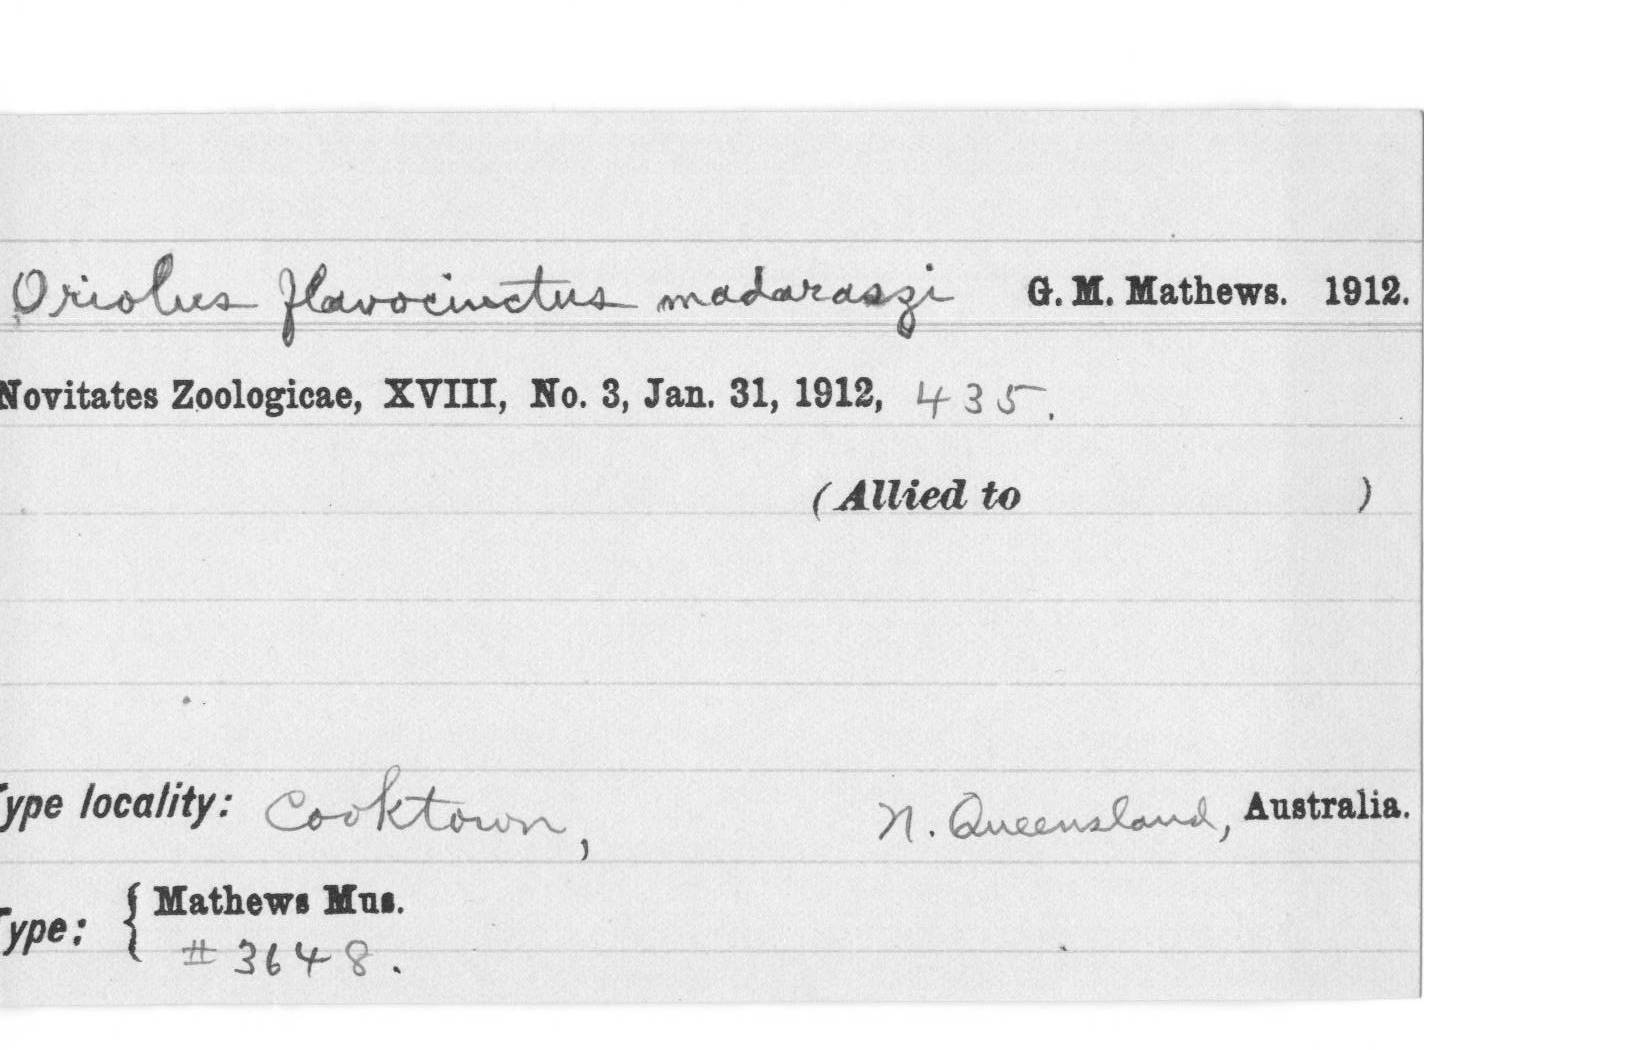 Oriolus flavocinctus madaraszi G. M. Mathews. 1912.
Novitates Zoologicae, XVIII, No. 3, Jan. 31, 1912, 435.
(Allied to )
Type locality: Cooktown, N. Queensland, Australia.
Type: { Mathews Mus.
# 3648.